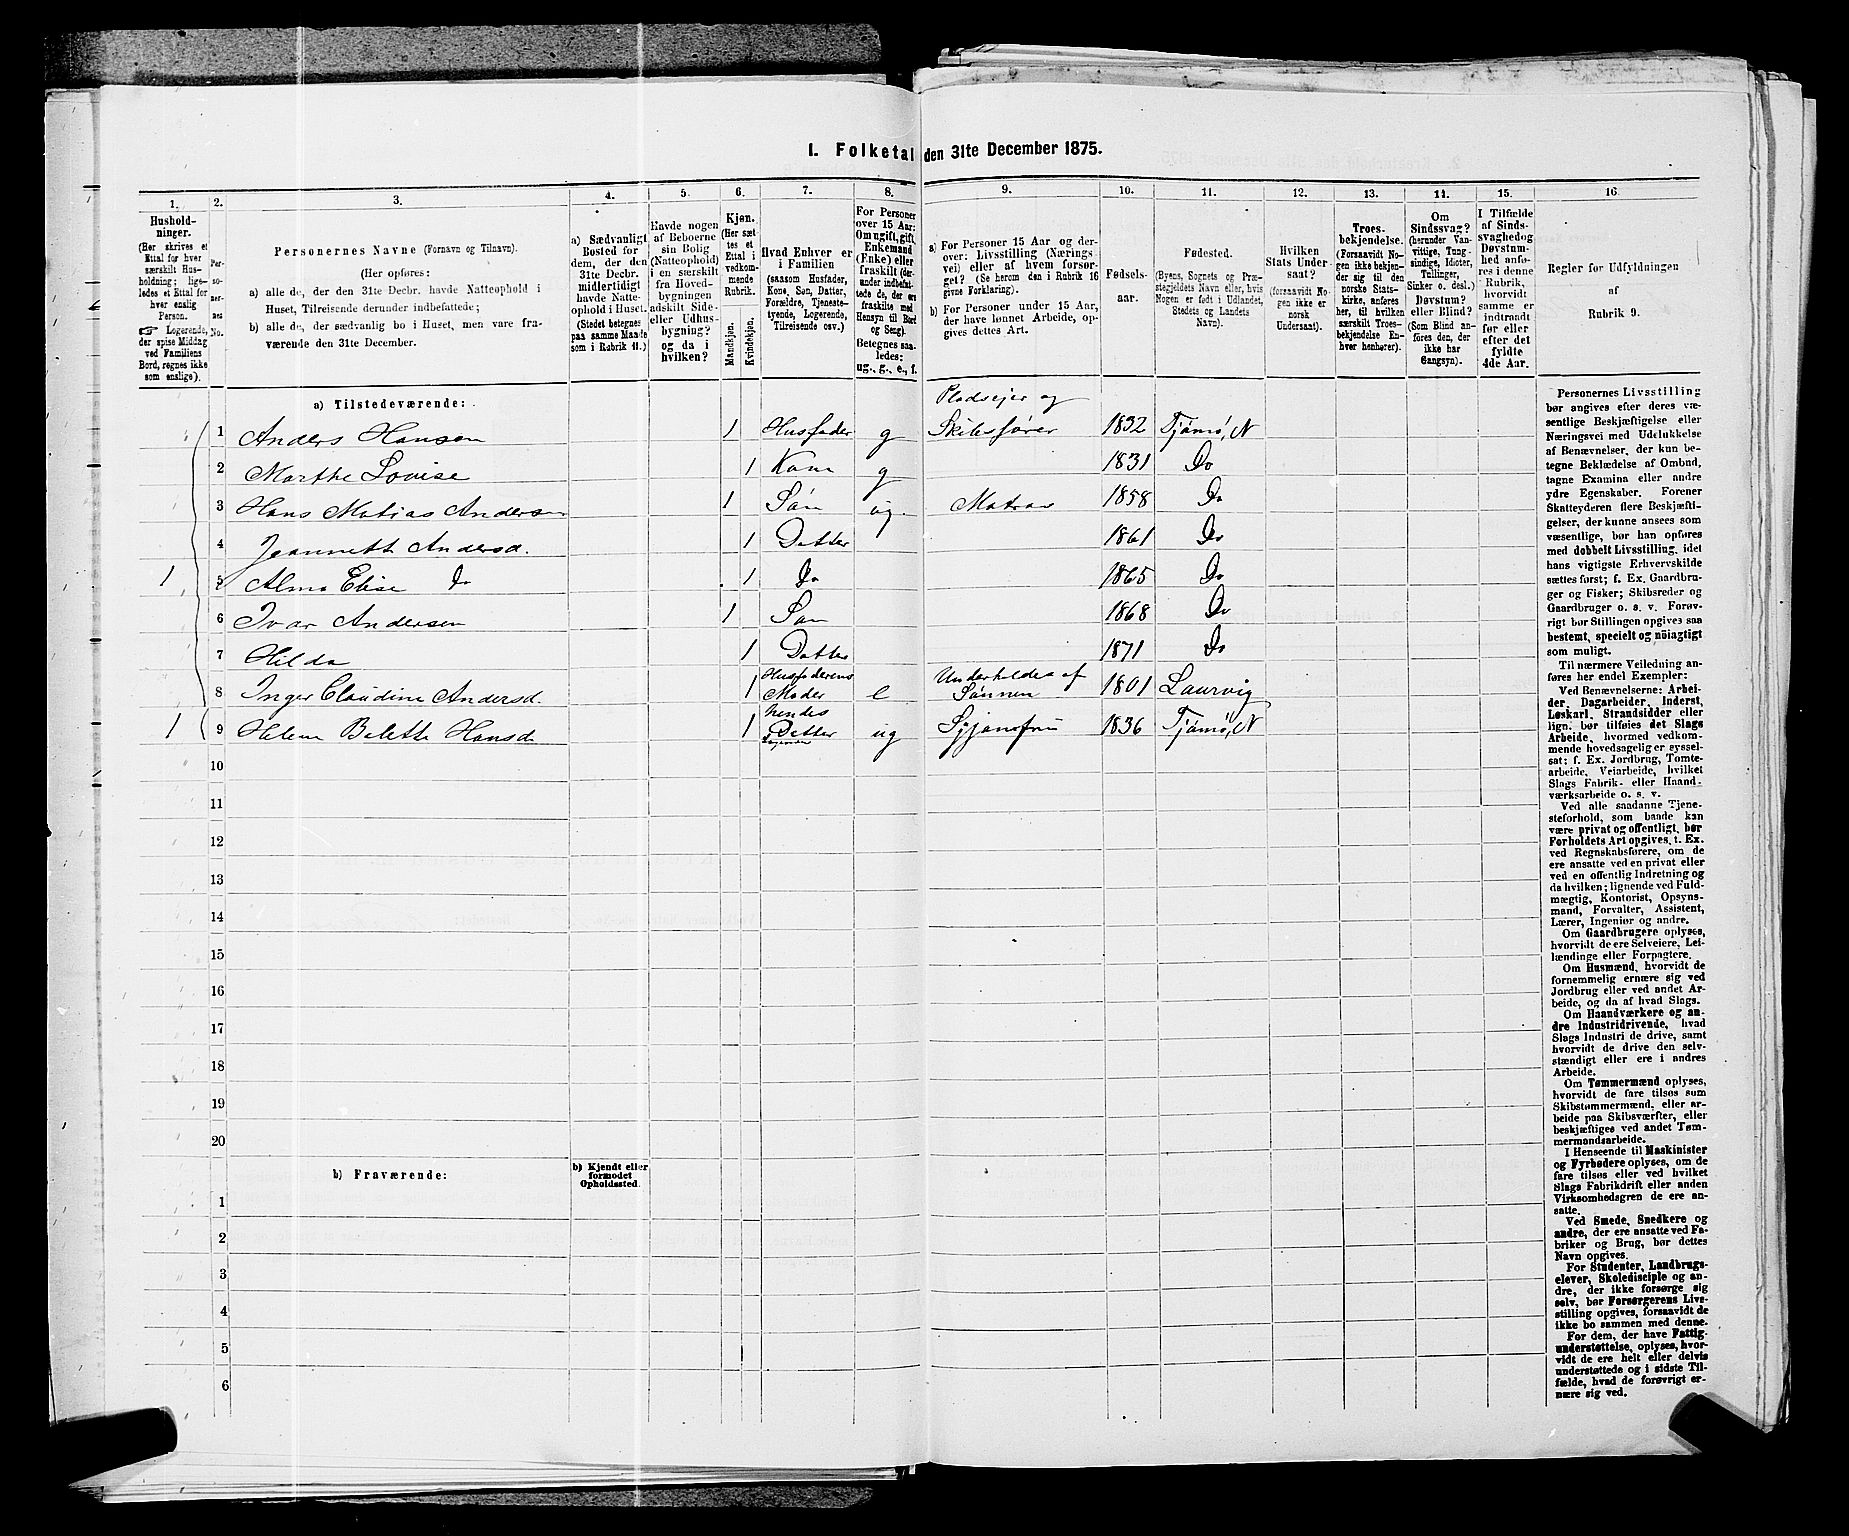 I. Folketal den 31te December 1875.
1. 2. 3. 4. 5. 6. 7. 8. 9. 10. 11. 12. 13. 14. 15. 16
Hushold-
ninger.
(Her skrives et
Ettal for hver
særskilt Hus-
holdning; lige-
ledes et Ettal for
hver enslig
Person.
☞ Logerende,
der spise Middag
ved Familiens
Bord, regnes ikke
som enslige).
Per-
so-
ner-
nes
No.
Personernes Navne (Fornavn og Tilnavn).
(Her opføres:
a) alle de, der den 31te Decbr. havde Natteophold i
Huset, Tilreisende derunder indbefattede;
b) alle de, der sædvanlig bo i Huset, men vare fra-
værende den 31te December.
a) Sædvanligt
Bosted for
dem, der den
31te Decbr.
midlertidigt
havde Natte-
ophold i Huset.
(Stedet betegnes
paa samme Maade
som i Rubrik 11.)
Havde nogen
af Beboerne
sin Bolig
(Natteophold)
i en særskilt
fra Hoved-
bygningen
adskilt Side-
eller Udhus-
bygning?
og da i
hvilken?
Kjøn.
(Her sæt-
tes et
Ettal i
vedkom-
mende
Rubrik.
Mandkjøn.
Kvindekjøn.
Hvad Enhver er
i Familien
(saasom Husfader,
Kone, Søn, Datter,
Forældre, Tjeneste-
tyende, Logerende,
Tilreisende osv.)
For Personer
over 15 Aar:
Om ugift, gift,
Enkemand
(Enke) eller
fraskilt (der-
under indbefat-
tede de, der ere
fraskilte med
Hensyn til Bord
og Seng).
Betegnes saa-
ledes:
ug., g., e., f.
a) For Personer 15 Aar og der-
over: Livsstilling (Nærings-
vei) eller af hvem forsør-
get? (Se herom den i Rubrik 16
givne Forklaring).
b) For Personer under 15 Aar,
der have lønnet Arbeide, op-
gives dettes Art.
Fødsels-
aar.
Fødested.
(Byens, Sognets og Præ-
stegjeldets Navn eller, hvis
Nogen er født i Udlandet,
Stedets og Landets
Navn).
Hvilken
Stats Under
saat?
(forsaavidt No-
gen ikke er
norsk
Undersaat).
Troes-
bekjendelse.
(Forsaavidt No-
gen ikke bekjen-
der sig til den
norske Stats-
kirke, anføres
her, til hvilken
særskilt Troes-
bekjendelse En-
hver henhører).
Om
Sindssvag?
(herunder Van-
vittige, Tung-
sindige, Idioter,
Tullinger,
Sinker o. desl.)
Døvstum?
eller Blind?
(Som Blind an-
føres den, der
ikke har
Gangsyn).
I Tilfælde
af Sinds-
svaghedog
Døvstum-
hed anfø-
res i denne
Rubrik,
hvorvidt
samme er
indtraadt
før eller
efter det
fyldte
4de Aar.
Regler for Udfyldningen
af
Rubrik 9.
a) Tilstedeværende:
1 Anders Hansen 1 Husfader g Pladsejer og Skibsfører 1832 Tjømø, N
2 Marthe Lovise 1 Kone g 1831 Do
3 Hans Matias Andersen 1 Søn ug. Matros 1858 Do
4 Jeannett Andersd. 1 Datter 1861 Do
1 5 Alma Elise Do 1 Do 1865 Do
6 Ivar Andersen 1 Søn 1868 Do
7 Hilda 1 Datter 1871 Do
8 Inger Claudine Andersd. 1 Husfaderens Moder e Underholdes af Sønnen 1801 Laurvig
1 9 Helene Belette Hansd 1 hendes Datter Logerende ug Syjomfru 1836 Tjømø, N
10
11
12
13
14
15
16
17
18
19
20
b) Fraværende:
b) Kjendt eller
formodet
Opholdssted.
1
2
3
4
5
6
Personernes Livsstilling
bør angives efter deres væ-
sentlige Beskjæftigelse eller
Næringsvei med Udelukkelse
af Benævnelser, der kun be-
tegne Beklædelse af Ombud,
tagne Examina eller andre
ydre Egenskaber. Forener
Skatteyderen flere Beskjæfti-
gelser, der kunne ansees som
væsentlige, bør han opføres
med dobbelt Livsstilling, idet
hans vigtigste Erhvervskilde
sættes først; f. Ex. Gaardbru-
ger og Fisker; Skibsreder og
Gaardbruger o. s. v. Forøv-
rigt bør Stillingen opgives saa
bestemt, specielt og nøiagtigt
som muligt.
Til nærmere Veiledning an-
føres her endel Exempler:
Ved Benævnelserne: Arbei-
der, Dagarbeider, Inderst,
Løskarl, Strandsidder eller
lign. bør tilføies det Slags
Arbeide, hvormed vedkom-
mende hovedsagelig er syssel-
sat; f. Ex. Jordbrug, Tomte-
arbeide, Veiarbeide, hvilket
Slags Fabrik- eller Haand-
værksarbeide o. s. v.
Ved alle saadanne Tjene-
steforhold, som baade kan
være privat og offentligt, bør
Forholdets Art opgives, t. Ex.
ved Regnskabsførere, om de
ere ansatte ved en privat eller
ved en offentlig Indretning og
da hvilken; lignende ved Fuld-
mægtig, Kontorist, Opsyns-
mand, Forvalter, Assistent,
Lærer, Ingeniør og andre.
Om Gaardbrugere oplyses,
hvorvidt de ere Selveiere, Lei-
lændinge eller Forpagtere.
Om Husmænd, hvorvidt de
fornemmelig ernære sig ved
Jordbrug eller ved andet Ar-
beide, og da af hvad Slags.
Om Haandværkere og an-
dre Industridrivende, hvad
Slags Industri de drive, samt
hvorvidt de drive den selv-
stændigt eller ere i andres
Arbeide.
Om Tømmermænd oplyses,
hvorvidt de fare tilsøs som
Skibstømmermænd, eller ar-
beide paa Skibsværfter, eller
beskjæftiges ved andet Tøm-
mermandsarbeide.
I Henseende til Maskinister
og Fyrbødere oplyses, om de
fare tilsøs eller ved hvilket
Slags Fabrikdrift eller anden
Virksomhedsgren de ere an-
satte.
Ved Smede, Snedkere og
andre, der ere ansatte ved Fa-
briker og Brug, bør dettes
Navn opgives.
For Studenter, Landbrugs-
elever, Skoledisciple og an-
dre, der ikke forsørge sig
selv, bør Forsørgerens Livs-
stilling opgives, forsaavidt de
ikke bo sammen med denne.
For dem, der have Fattig-
understøttelse, oplyses, hvor-
vidt de ere helt eller delvis
understøttede og i sidste Til-
fælde, hvad de forøvrigt er-
nære sig ved.